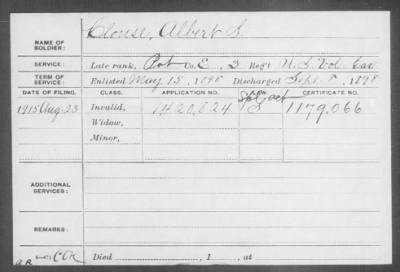 NAME OF SOLDIER: Clouse, Albert S.
SERVICE: Late rank, Pvt Co. E, 3 Reg't U.S. Vol. Cav
TERM OF SERVICE: Enlisted May 15, 1898 Discharged Sept. 8, 1898
DATE OF FILING. CLASS. APPLICATION NO. CERTIFICATE NO.
1915 Aug. 23 Invalid, 1420,824 1179,066
Widow,
Minor,
ADDITIONAL SERVICES:
REMARKS:
Died , 1 , at